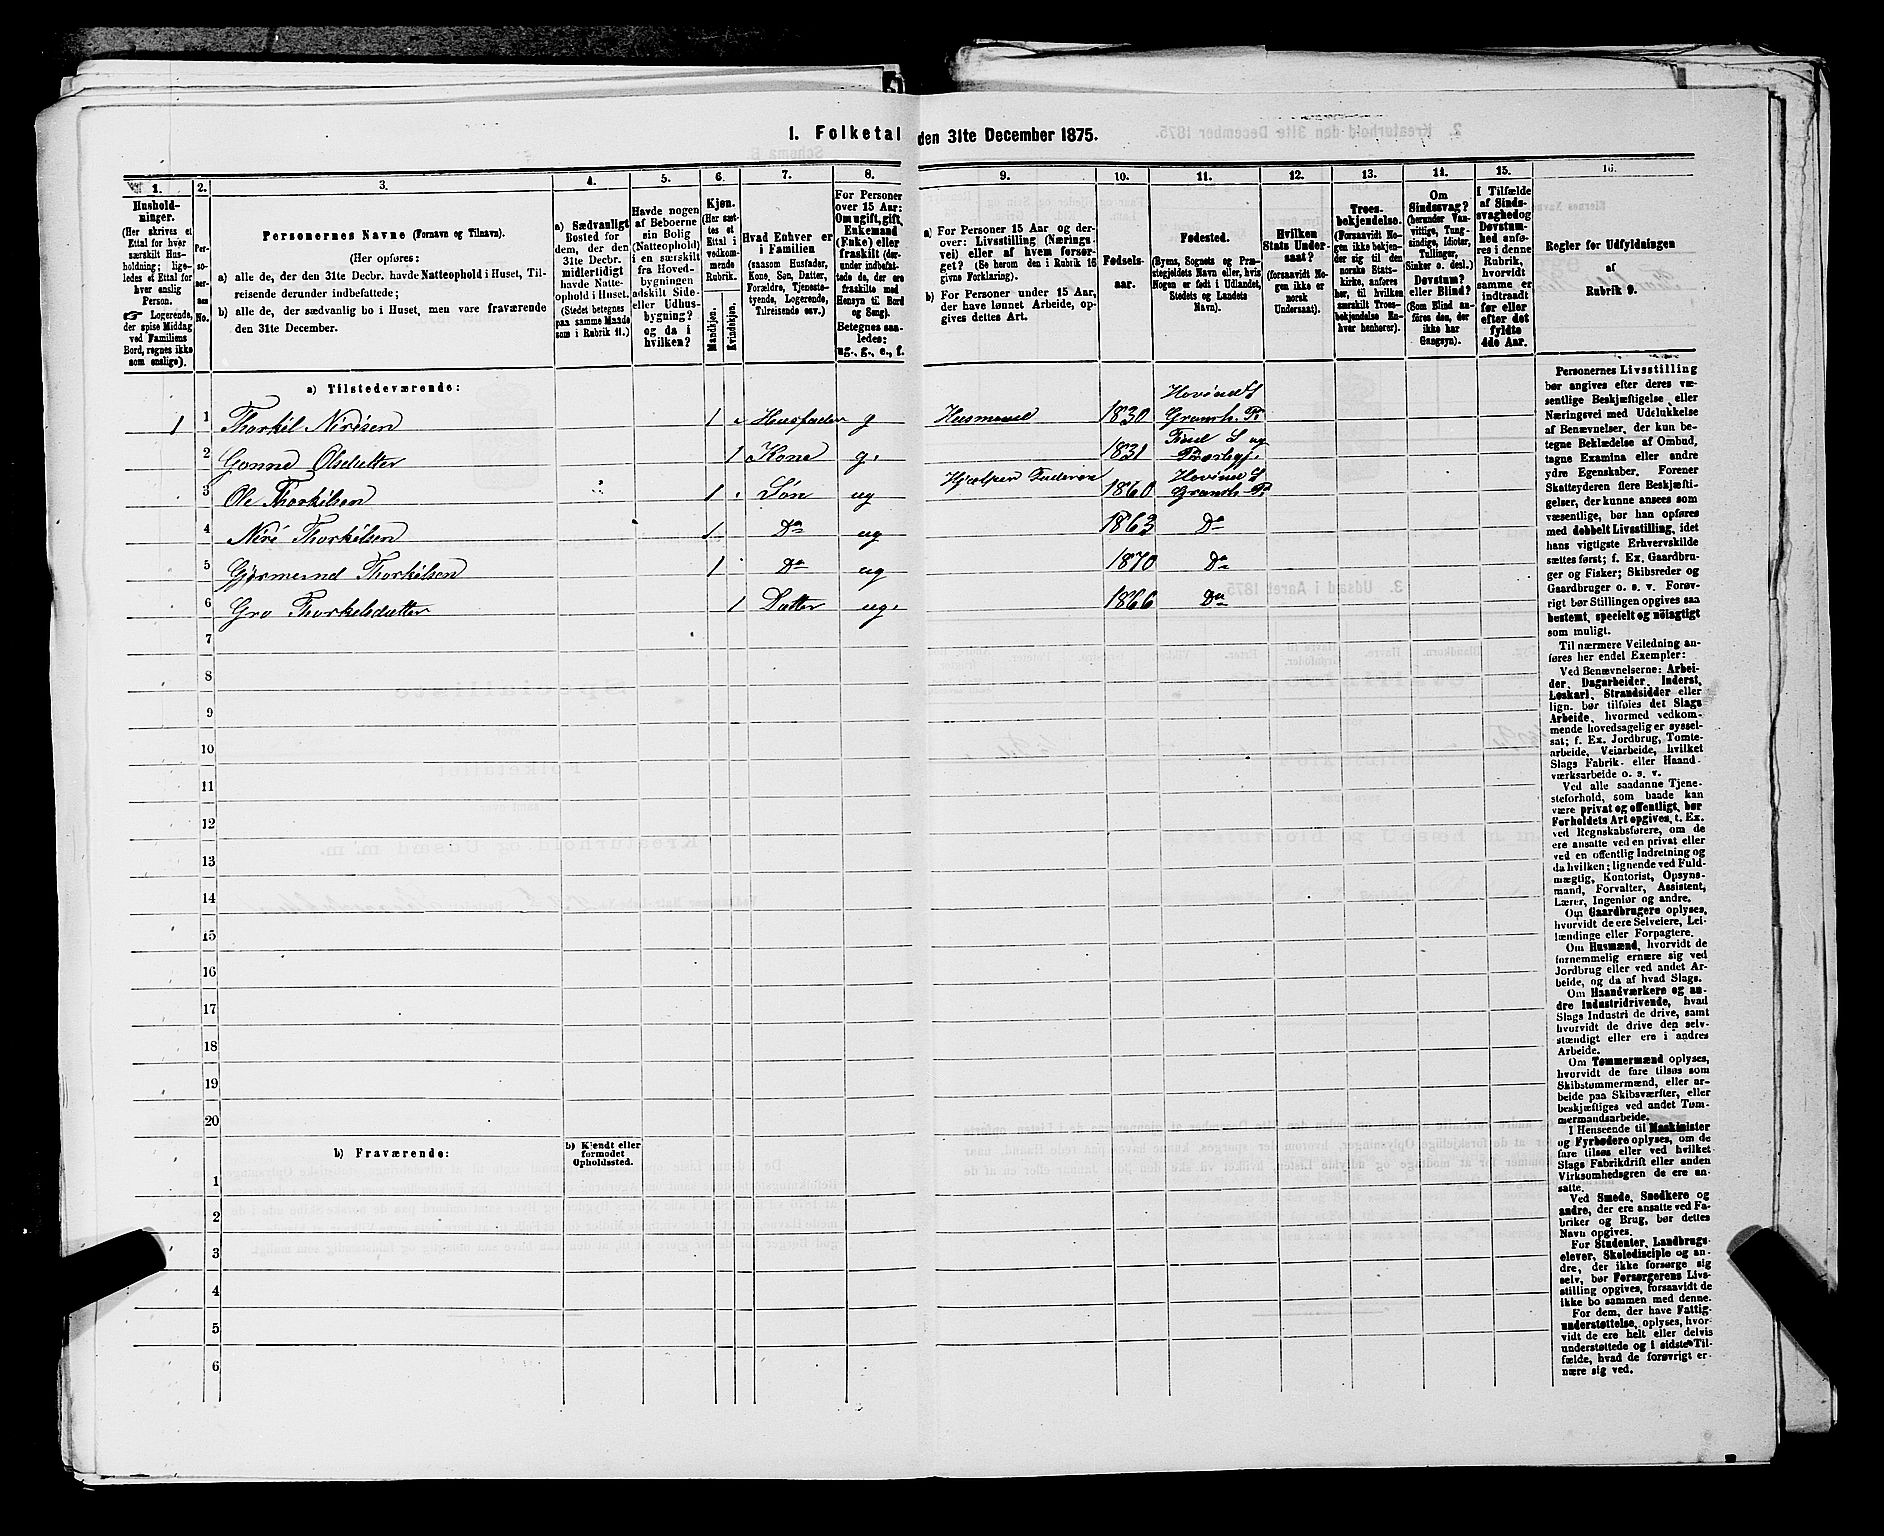 1. Folketal den 31te December 1875.
1.
2.
3.
4.
5.
6.
7.
8.
9.
10.
11.
12.
13.
14.
15.
16.
Hushold-
ninger.
(Her skrives et
Ettal for hver
særskilt Hus-
holdning; lige-
ledes et Ettal for
hver enslig
Person.
☞ Logerende,
der spise Middag
ved Familiens
Bord, regnes ikke
som enslige).
Per-
so-
ner-
nes
No.
Personernes Navne (Fornavn og Tilnavn).
(Her opføres:
a) alle de, der den 31te Decbr. havde Natteophold i Huset, Til-
reisende derunder indbefattede;
b) alle de, der sædvanlig bo i Huset, men vare fraværende
den 31te December.
a) Sædvanligt
Bosted for
dem, der den
31te Decbr.
midlertidigt
havde Natte-
ophold i Huset.
(Stedet betegnes
paa samme Maade
som i Rubrik 11.)
Havde nogen
af Beboerne
sin Bolig
(Natteophold)
i en særskilt
fra Hoved-
bygningen
adskilt Side-
eller Udhus-
bygning?
og da i
hvilken?
Kjøn.
(Her sæt-
tes et
Ettal i
vedkom-
mende
Rubrik.
Mandkjøn.
Kvindekjøn.
Hvad Enhver er
i Familien
(saasom Husfader,
Kone, Søn, Datter,
Forældre, Tjeneste-
tyende, Logerende,
Tilreisende osv.)
For Personer
over 15 Aar:
Om ugift, gift,
Enkemand
(Enke) eller
fraskilt (der-
under indbefat-
tede de, der ere
fraskilte med
Hensyn til Bord
og Seng).
Betegnes saa-
ledes:
ug., g., e., f.
a) For Personer 15 Aar og der-
over: Livsstilling (Nærings-
vei) eller af hvem forsør-
get? (Se herom den i Rubrik 16
givne Forklaring).
b) For Personer under 15 Aar,
der have lønnet Arbeide, op-
gives dettes Art.
Fødsels-
aar.
Fødested.
(Byens, Sognets og Præ-
stegjeldets Navn eller, hvis
Nogen er født i Udlandet,
Stedets og Landets
Navn).
Hvilken
Stats Under-
saat?
(forsaavidt No-
gen ikke er
norsk
Undersaat).
Troes-
bekjendelse.
(Forsaavidt No-
gen ikke bekjen-
der sig til den
norske Stats-
kirke, anføres
her, til hvilken
særskilt Troes-
bekjendelse En-
hver henhører).
Om
Sindssvag?
(herunder Van-
vittige, Tung-
sindige, Idioter,
Tullinger,
Sinker o. desl.)
Døvstum?
eller Blind?
(Som Blind an-
føres den, der
ikke har
Gangsyn).
I Tilfælde
af Sinds-
svaghed og
Døvstum-
hed anfø-
res i denne
Rubrik,
hvorvidt
samme er
indtraadt
før eller
efter det
fyldte
4de Aar.
Regler for Udfyldningen
af
Rubrik 9.
a) Tilstedeværende:
1 1 Thorkil Nirisen 1 Husfader g Husmand 1830 Hovind S Gransh. Pr
2 Gonne Olsdatter 1 Kone g. 1831 Tind S og Præstegj.
3 Ole Thorkilsen 1 Søn ug Hjælper Faderen 1860 Hovind S Gransh. Pr
4 Niri Thorkilsen 1 Do ug 1863 Do
5 Gjermund Thorkilsen 1 Do ug 1870 Do
6 Gro Thorkelsdatter 1 Datter ug. 1866 Do
7
8
9
10
11
12
13
14
15
16
17
18
19
20
b) Fraværende:
b) Kjendt eller
formodet
Opholdssted.
1
2
3
4
5
6
Personernes Livsstilling
bør angives efter deres væ-
sentlige Beskjæftigelse eller
Næringsvei med Udelukkelse
af Benævnelser, der kun be-
tegne Beklædelse af Ombud,
tagne Examina eller andre
ydre Egenskaber. Forener
Skatteyderen flere Beskjæfti-
gelser, der kunne ansees som
væsentlige, bør han opføres
med dobbelt Livsstilling, idet
hans vigtigste Erhvervskilde
sættes først; f. Ex. Gaardbru-
ger og Fisker; Skibsreder og
Gaardbruger o. s. v. Forøv-
rigt bør Stillingen opgives saa
bestemt, specielt og nøiagtigt
som muligt.
Til nærmere Veiledning an-
føres her endel Exempler:
Ved Benævnelserne: Arbei-
der, Dagarbeider, Inderst,
Løskarl, Strandsidder eller
lign. bør tilføies det Slags
Arbeide, hvormed vedkom-
mende hovedsagelig er syssel-
sat; f. Ex. Jordbrug, Tomte-
arbeide, Veiarbeide, hvilket
Slags Fabrik- eller Haand-
værksarbeide o. s. v.
Ved alle saadanne Tjene-
steforhold, som baade kan
være privat og offentligt, bør
Forholdets Art opgives, t. Ex.
ved Regnskabsførere, om de
ere ansatte ved en privat eller
ved en offentlig Indretning og
da hvilken; lignende ved Fuld-
mægtig, Kontorist, Opsyns-
mand, Forvalter, Assistent,
Lærer, Ingeniør og andre.
Om Gaardbrugere oplyses,
hvorvidt de ere Selveiere, Lei-
lændinge eller Forpagtere.
Om Husmænd, hvorvidt de
fornemmelig ernære sig ved
Jordbrug eller ved andet Ar-
beide, og da af hvad Slags.
Om Haandværkere og an-
dre Industridrivende, hvad
Slags Industri de drive, samt
hvorvidt de drive den selv-
stændigt eller ere i andres
Arbeide.
Om Tømmermænd oplyses,
hvorvidt de fare tilsøs som
Skibstømmermænd, eller ar-
beide paa Skibsværfter, eller
beskjæftiges ved andet Tøm-
mermandsarbeide.
I Henseende til Maskinister
og Fyrbødere oplyses, om de
fare tilsøs eller ved hvilket
Slags Fabrikdrift eller anden
Virksomhedsgren de ere an-
satte.
Ved Smede, Snedkere og
andre, der ere ansatte ved Fa-
briker og Brug, bør dettes
Navn opgives.
For Studenter, Landbrugs-
elever, Skoledisciple og an-
dre, der ikke forsørge sig
selv, bør Forsørgerens Livs-
stilling opgives, forsaavidt de
ikke bo sammen med denne.
For dem, der have Fattig-
understøttelse, oplyses, hvor-
vidt de ere helt eller delvis
understøttede og i sidste Til-
fælde, hvad de forøvrigt er-
nære sig ved.